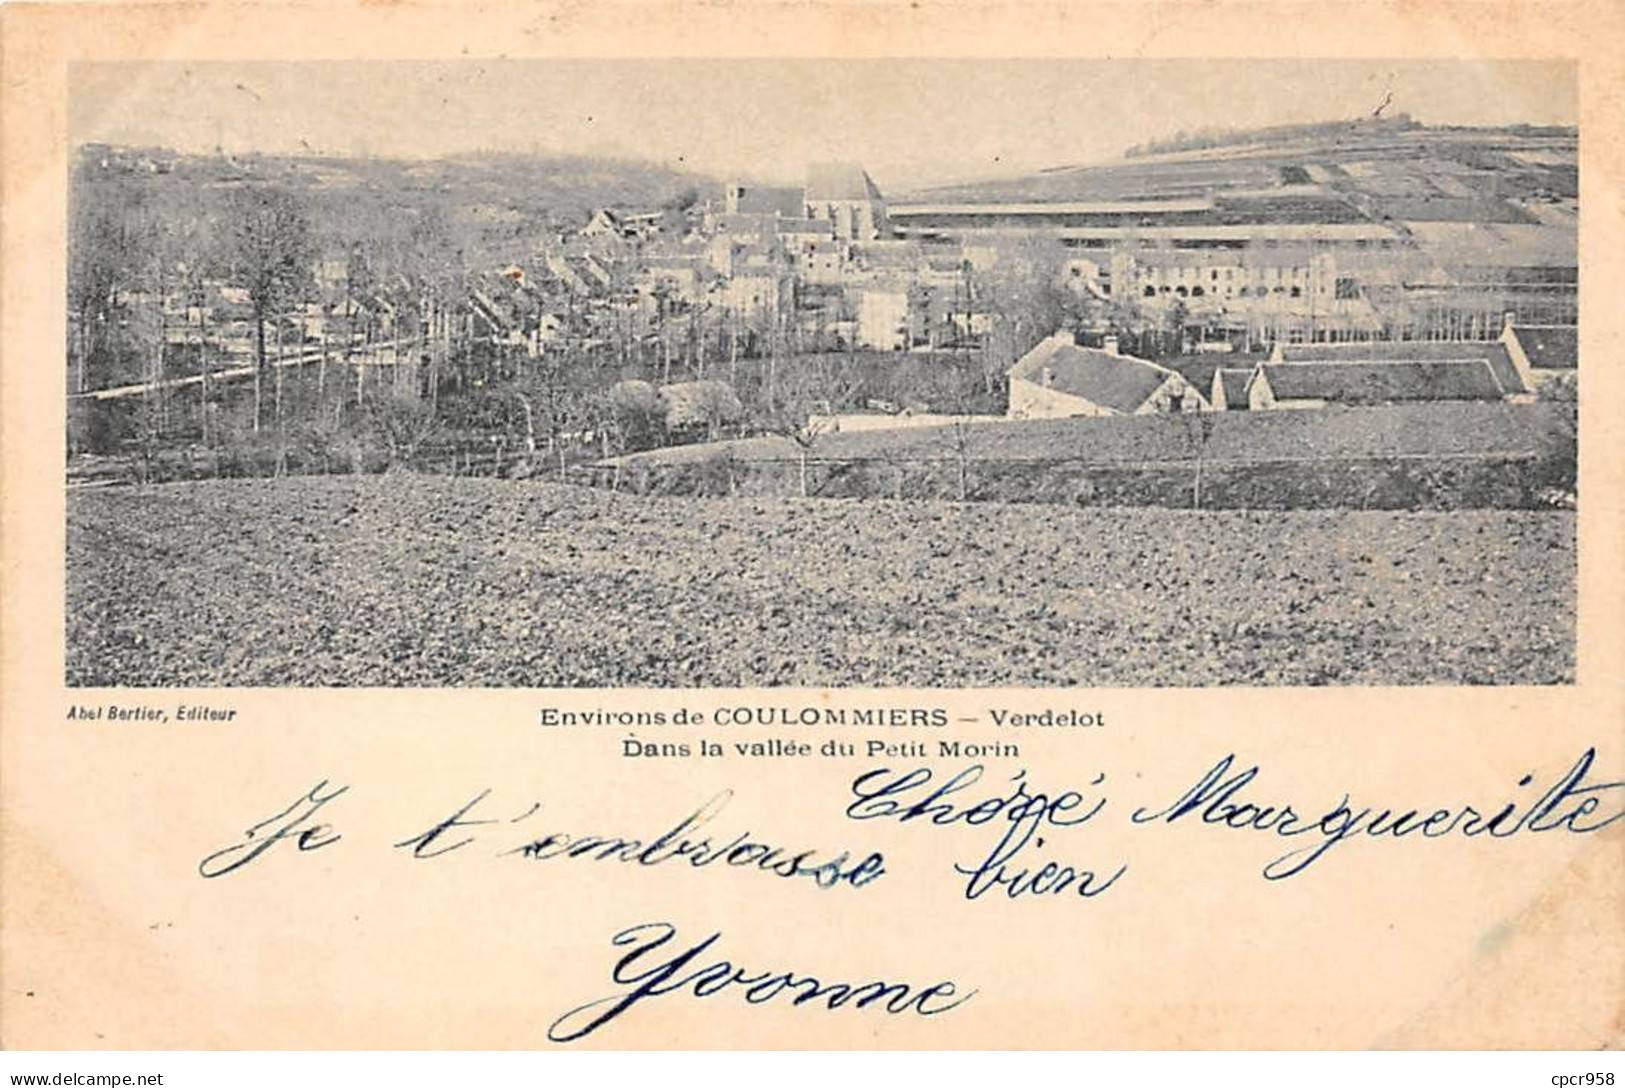 Abel Bertier, Editeur
Environs de COULOMMIERS — Verdelot
Dans la vallée du Petit Morin
Chéré Marguerite
Je t'embrasse bien
Yvonne
delcampe.net
cpcr958